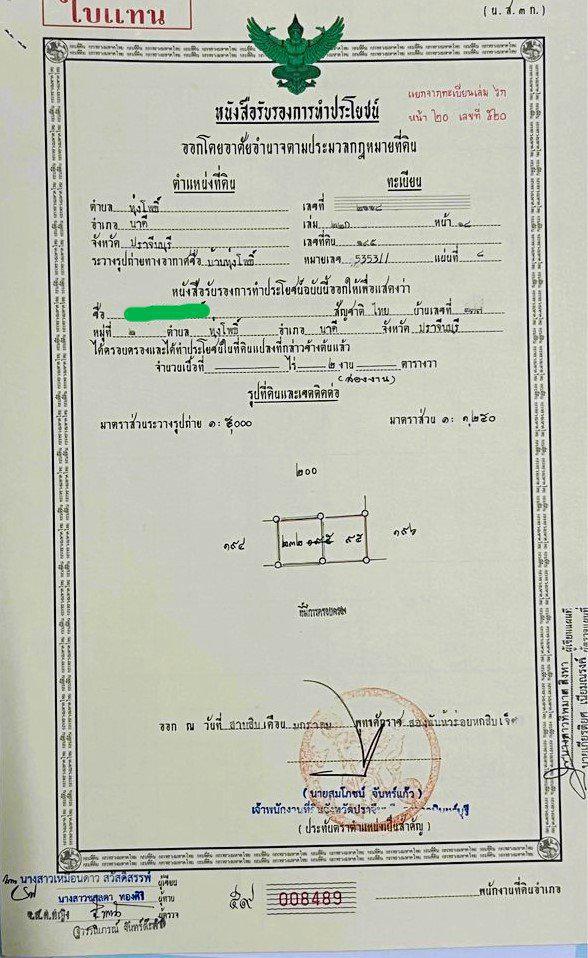 ใบแทน
(น.ส.๓ ก.)
แยกจากทะเบียนเล่ม ๖ก
หน้า ๒๐ เลขที่ ๕๒๐
หนังสือรับรองการทำประโยชน์
ออกโดยอาศัยอำนาจตามประมวลกฎหมายที่ดิน
ตำแหน่งที่ดิน
ทะเบียน
ตำบล ทุ่งโพธิ์ เลขที่
อำเภอ นาดี เล่ม ๒๒ก หน้า ๑๘
จังหวัด ปราจีนบุรี เลขที่ดิน ๑๙๕
ระวางรูปถ่ายทางอากาศชื่อ บ้านทุ่งโพธิ์ หมายเลข 5353II แผ่นที่ ๘
หนังสือรับรองการทำประโยชน์ฉบับนี้ออกให้เพื่อแสดงว่า
ชื่อ สัญชาติ ไทย บ้านเลขที่
หมู่ที่ ๒ ตำบล ทุ่งโพธิ์ อำเภอ นาดี จังหวัด ปราจีนบุรี
ได้ครอบครองและได้ทำประโยชน์ในที่ดินแปลงที่กล่าวข้างต้นแล้ว
จำนวนเนื้อที่ ไร่ ๒ งาน ตารางวา
(สองงาน)
รูปที่ดินและเขตติดต่อ
มาตราส่วนระวางรูปถ่าย ๑: ๕,๐๐๐ มาตราส่วน ๑: ๑,๒๕๐
๒๐๐
๑๙๔ ๒๓๒ ๑๙๕ ๙๕ ๑๙๖
ที่มีการครอบครอง
ออก ณ วันที่ สามสิบ เดือน มกราคม พุทธศักราช สองพันห้าร้อยหกสิบเจ็ด
(นายสมโภชน์ จันทร์แก้ว)
เจ้าพนักงานที่ดินจังหวัดปราจีนบุรี
(ประทับตราตำแหน่งเป็นสำคัญ)
นางสาวทิพมาส สิงหา ผู้เขียนแผนที่
นายเกียรติยศ เนียมณรงค์ ผู้ตรวจแผนที่
นางสาวเหมือนดาว สวัสดิสรรพ์ ผู้เขียน
นางสาวชลลดา ทองศิริ ผู้ทาน
จ.ส.ต.หญิง ผู้ตรวจ
๕๗ 008489
พนักงานที่ดินอำเภอ